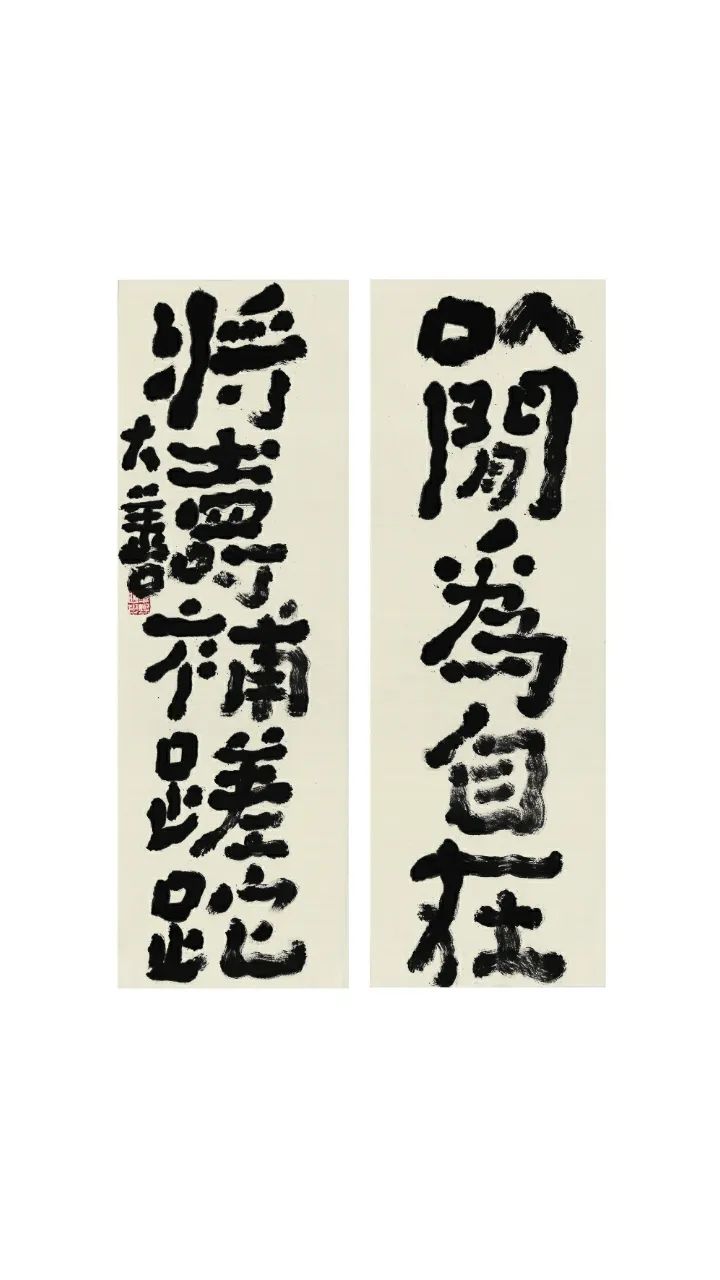 以閒為自在
將壽補蹉跎
大善